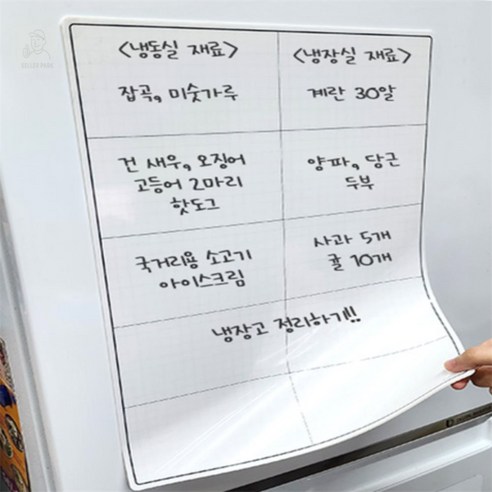 <냉동실 재료>
잡곡, 미숫가루
건 새우, 오징어
고등어 2마리
핫도그
국거리용 소고기
아이스크림
<냉장실 재료>
계란 30알
양파, 당근
두부
사과 5개
귤 10개
냉장고 정리하기!!